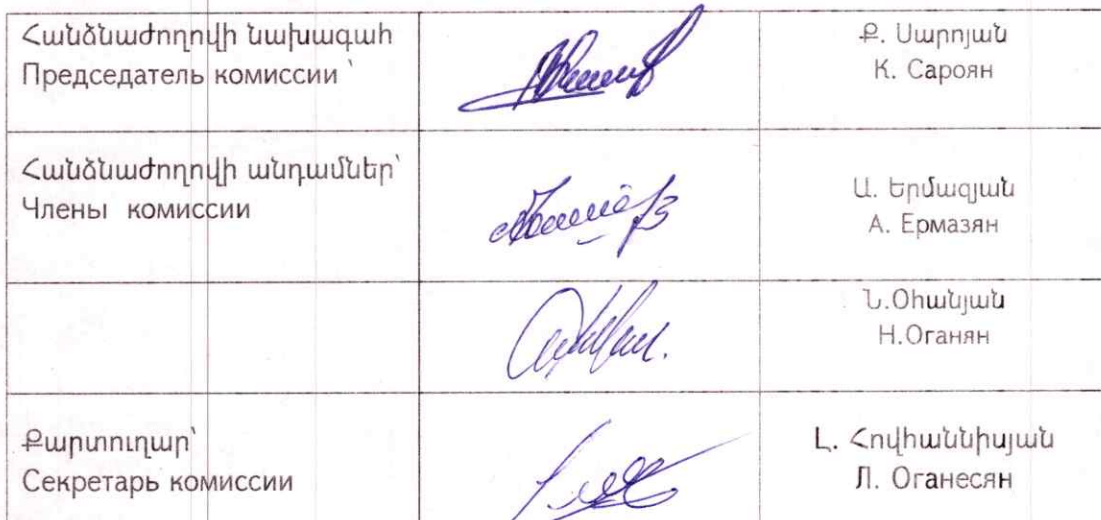 Հանձնաժողովի նախագահ
Председатель комиссии `
Ք. Սարոյան
К. Сароян
Հանձնաժողովի անդամներ՝
Члены комиссии
Ա. Երմազյան
А. Ермазян
Ն.Օհանյան
Н.Оганян
Քարտուղար՝
Секретарь комиссии
Լ. Հովհաննիսյան
Л. Оганесян